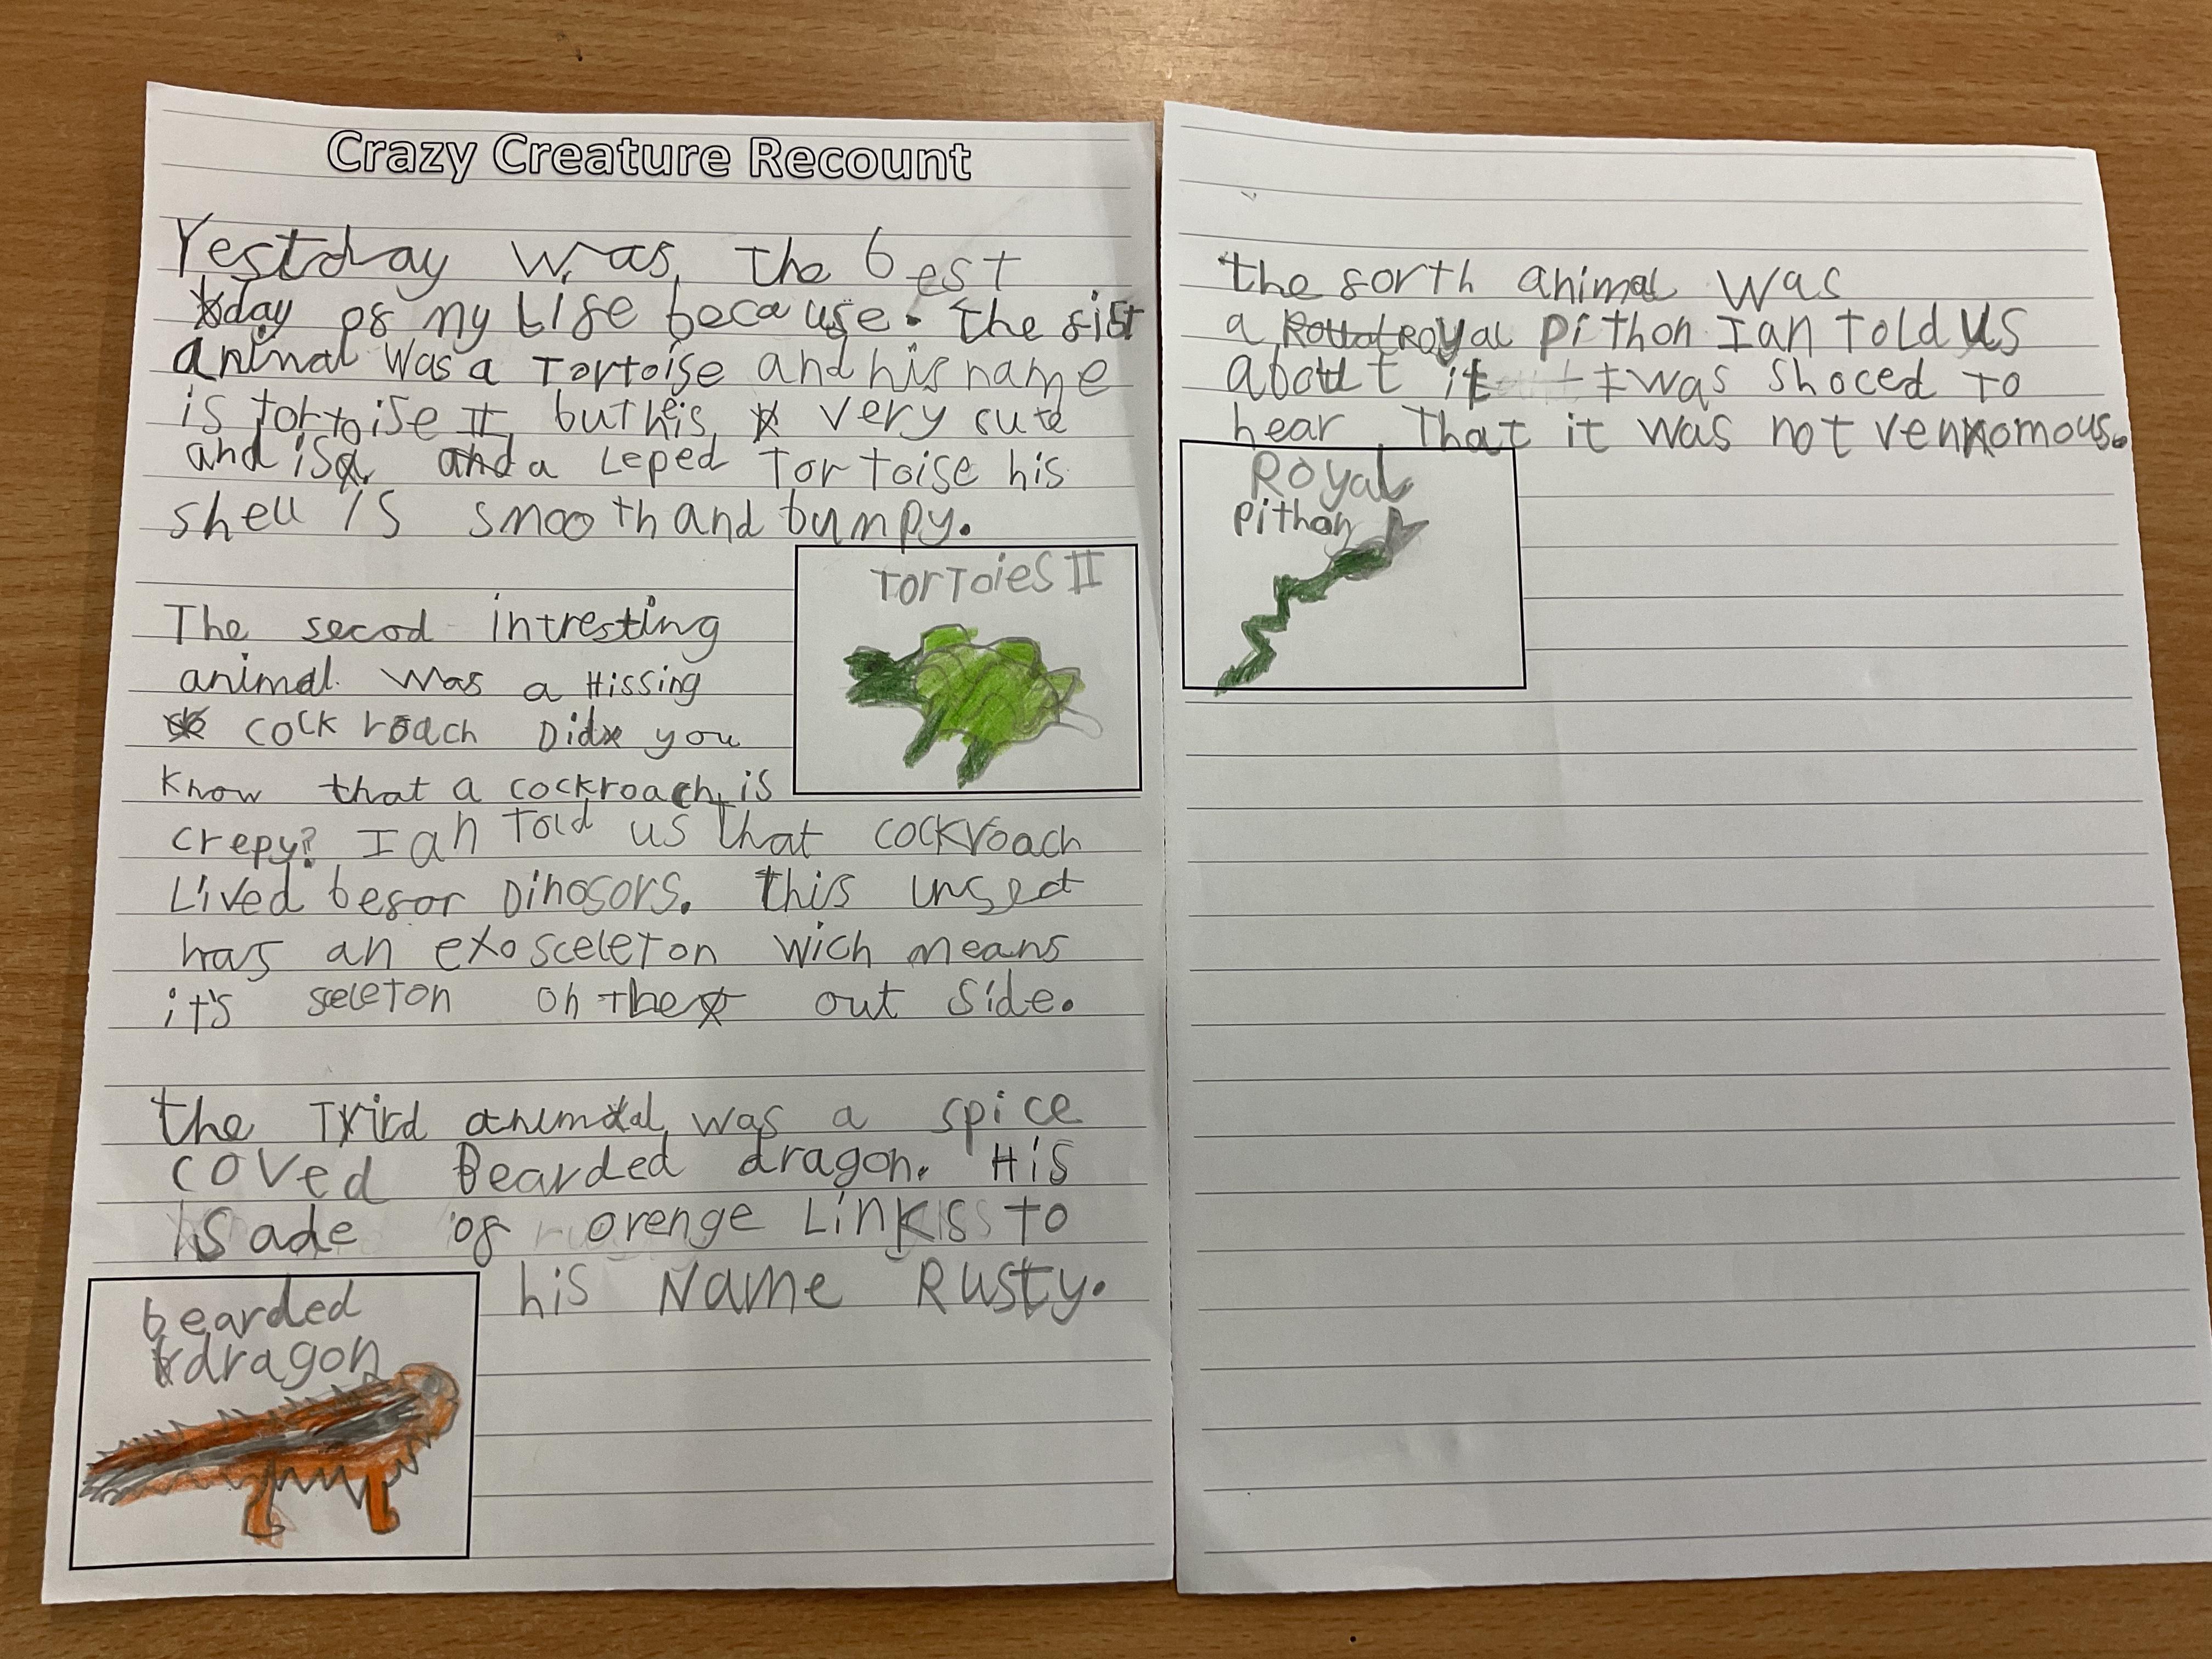 Crazy Creature Recount
Yestday was the best
day of my life because. the fist
animal was a Tortoise and his name
is tortoise II but he is very cute
and is a Leped Tortoise his
shell is smooth and bumpy.
TorToies II
The secod intresting
animal was a Hissing
cock roach Did you
know that a cockroach is
crepy? Ian Told us that cockroach
Lived befor Dinosors. this insect
has an exosceleton wich means
it's sceleton on the out side.
the Third animal was a spice
coved Bearded dragon. His
is ade of orenge Links to
his Name Rusty.
bearded
dragon
the forth animal was
a Royal pithon Ian told us
about it I was shoced to
hear That it was not venomous.
Royal
pithon